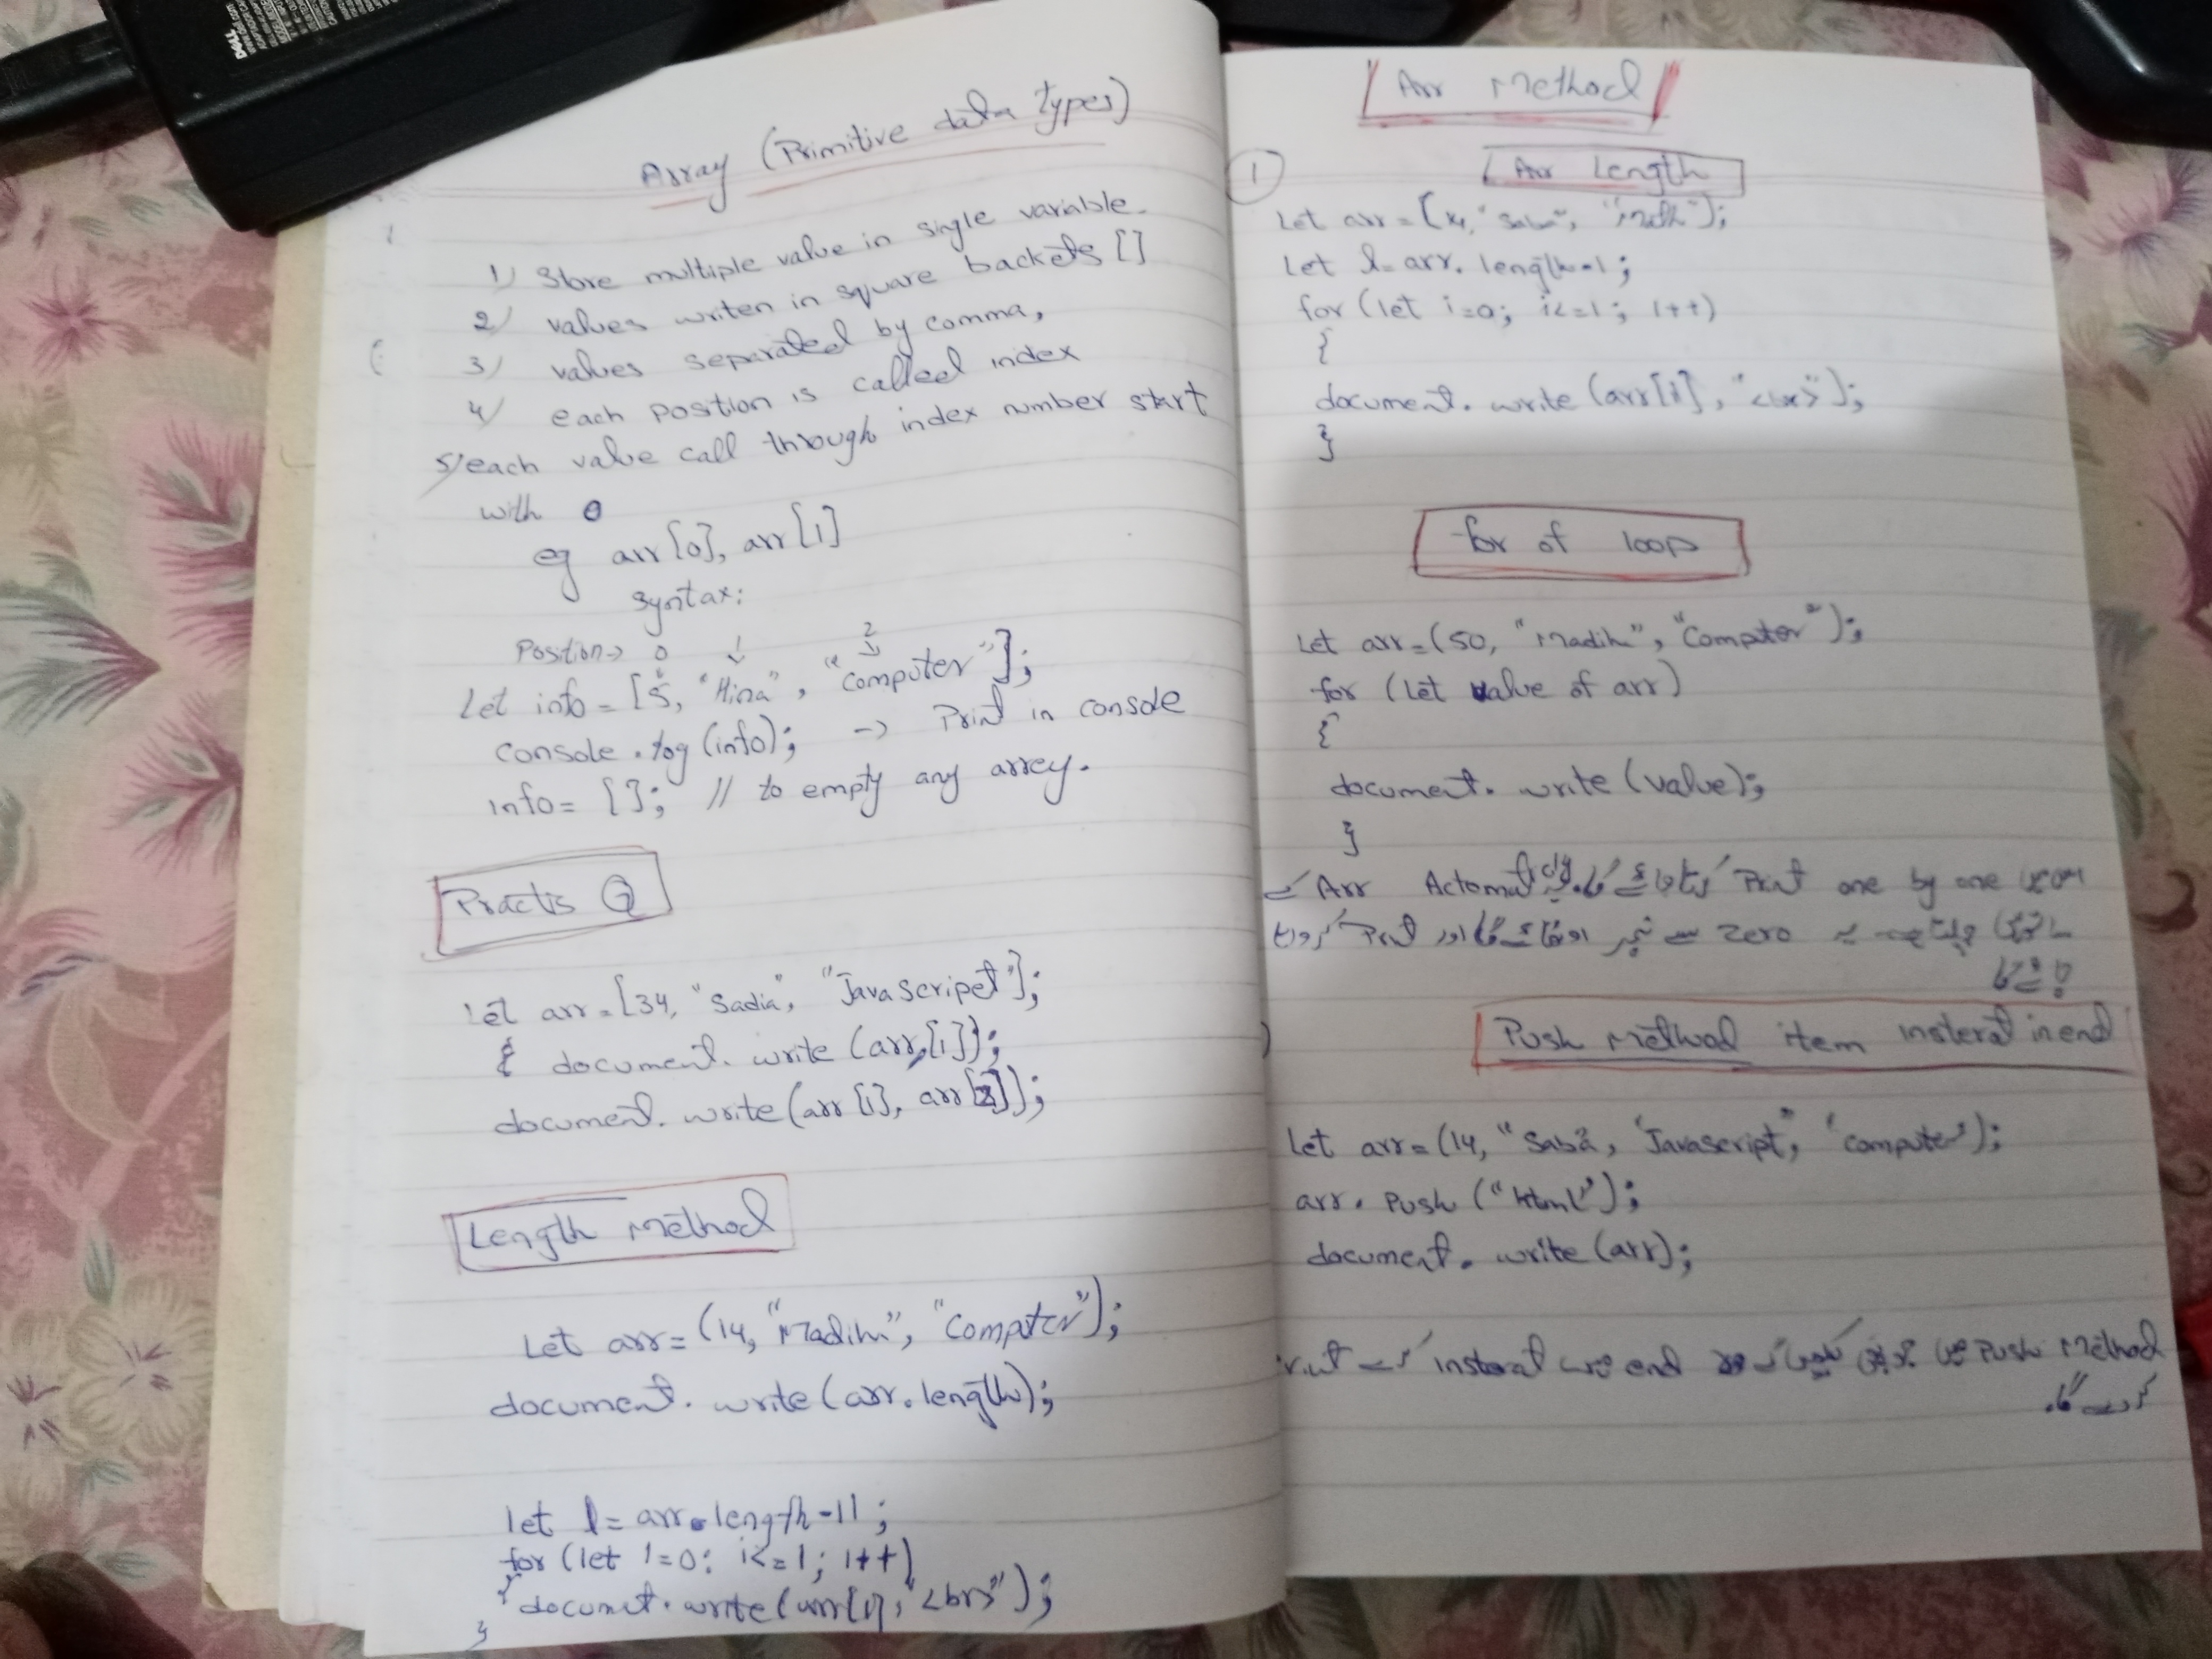 DELL
Array (Primitive data types)
1) Store multiple value in single variable.
2) values writen in square backets []
3) values separated by comma,
4) each position is called index
5) each value call through index number start
with 0
eg arr[0], arr[1]
Syntax:
Position-> 0 1 2
Let info = [5, "Hina", "Computer"];
console.log(info); -> Print in console
info = []; // to empty any arrey.
Practis Q
Let arr = [34, "Sadia", "Javascripet"];
document. write (arr[i]);
document. write (arr[i], arr[2]);
Length Method
Let arr = (14, "Madiha", "Computer");
document. write (arr.length);
let l = arr.length-1;
for (let i=0; i<=l; i++)
{ document.write(arr[i], "<br>");
}
Arr Method
1
Arr Length
Let arr = [14, "Saba", "Math"];
Let l = arr. length-1;
for (let i=0; i<=l; i++)
{
document. write (arr[i], "<br>");
}
for of loop
Let arr = (50, "Madiha", "Computer");
for (Let value of arr)
{
document. write (value);
}
Arr Print one by one
Print اور zero سے
Push Method item insterat in end
Let arr = (14, "Saba", "Javascript", "computer");
arr. Push ("Html");
document. write (arr);
Push Method end insterat